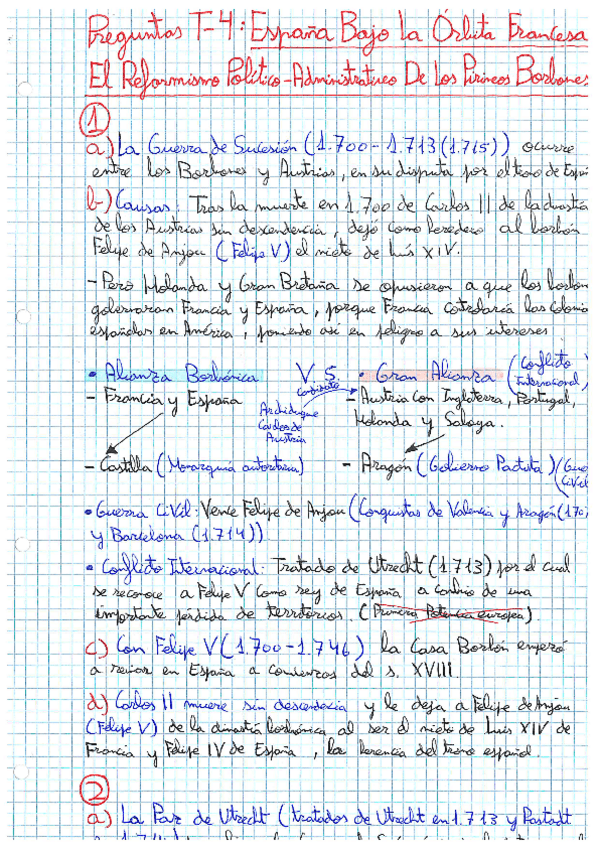 Preguntas T-4: España Bajo La Órbita Francesa
El Reformismo Político-Administrativo De Los Pirineos Borbones
1
a) La Guerra de Sucesión (1.700-1.713(1.715)) ocurre
entre los Borbones y Austrias, en su disputa por el trono de Espa
b) Causas: Tras la muerte en 1.700 de Carlos II de la dinastía
de los Austrias sin descendencia, dejó como heredero al borbón
Felipe de Anjou (Felipe V) el nieto de Luís XIV.
- Pero Holanda y Gran Bretaña se opusieron a que los borbon
gobernaran Francia y España, porque Francia controlaría las colonia
españolas en América, poniendo así en peligro a sus intereses
• Alianza Borbónica V.S. • Gran Alianza (Conflicto
Internacional)
- Francia y España candidato - Austria con Inglaterra, Portugal,
Archiduque Carlos de Austria
Holanda y Saboya.
- Castilla (Monarquía autoritaria) - Aragón (Gobierno Pactista) (Gue
Civil
• Guerra Civil: Vence Felipe de Anjou (Conquistas de Valencia y Aragón (1.70
y Barcelona (1.714))
• Conflicto Internacional: Tratado de Utrecht (1.713) por el cual
se reconoce a Felipe V como rey de España a cambio de una
importante pérdida de territorios. (Primera Potencia europea).
c) Con Felipe V (1.700-1.746) la Casa Borbón empezó
a reinar en España a comienzos del s. XVIII.
d) Carlos II muere sin descendencia y le deja a Felipe de Anjou
(Felipe V) de la dinastía borbónica al ser el nieto de Luis XIV de
Francia y Felipe IV de España, la herencia del trono español.
2
a) La Paz de Utrecht (tratados de Utrecht en 1.713 y Rastadt